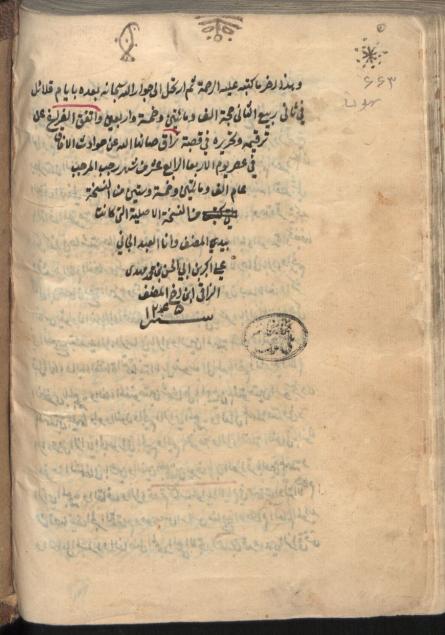 ٦٦٣
وبهذا اخر ما كتبه عليه الرحمة ثم ارتحل الى جوار الله سبحانه بعده بايام قلائل
في ثاني ربيع الثاني حجة الف ومائتين وخمسة واربعين واتفق الفراغ من
ترقيمه وتحريره في قصبة نراق صانها الله عن حوادث الافاق
في عصر يوم الاربعا الرابع عشر من شهر رجب المرجب
عام الف ومائتين وخمسة وستين من النسخة
من النسخة الاصلية التي كانت
بيدي المصنف وانا العبد الجاني
بن ابي الحسن بن محمد مهدى
النراقي ابن اخ المصنف